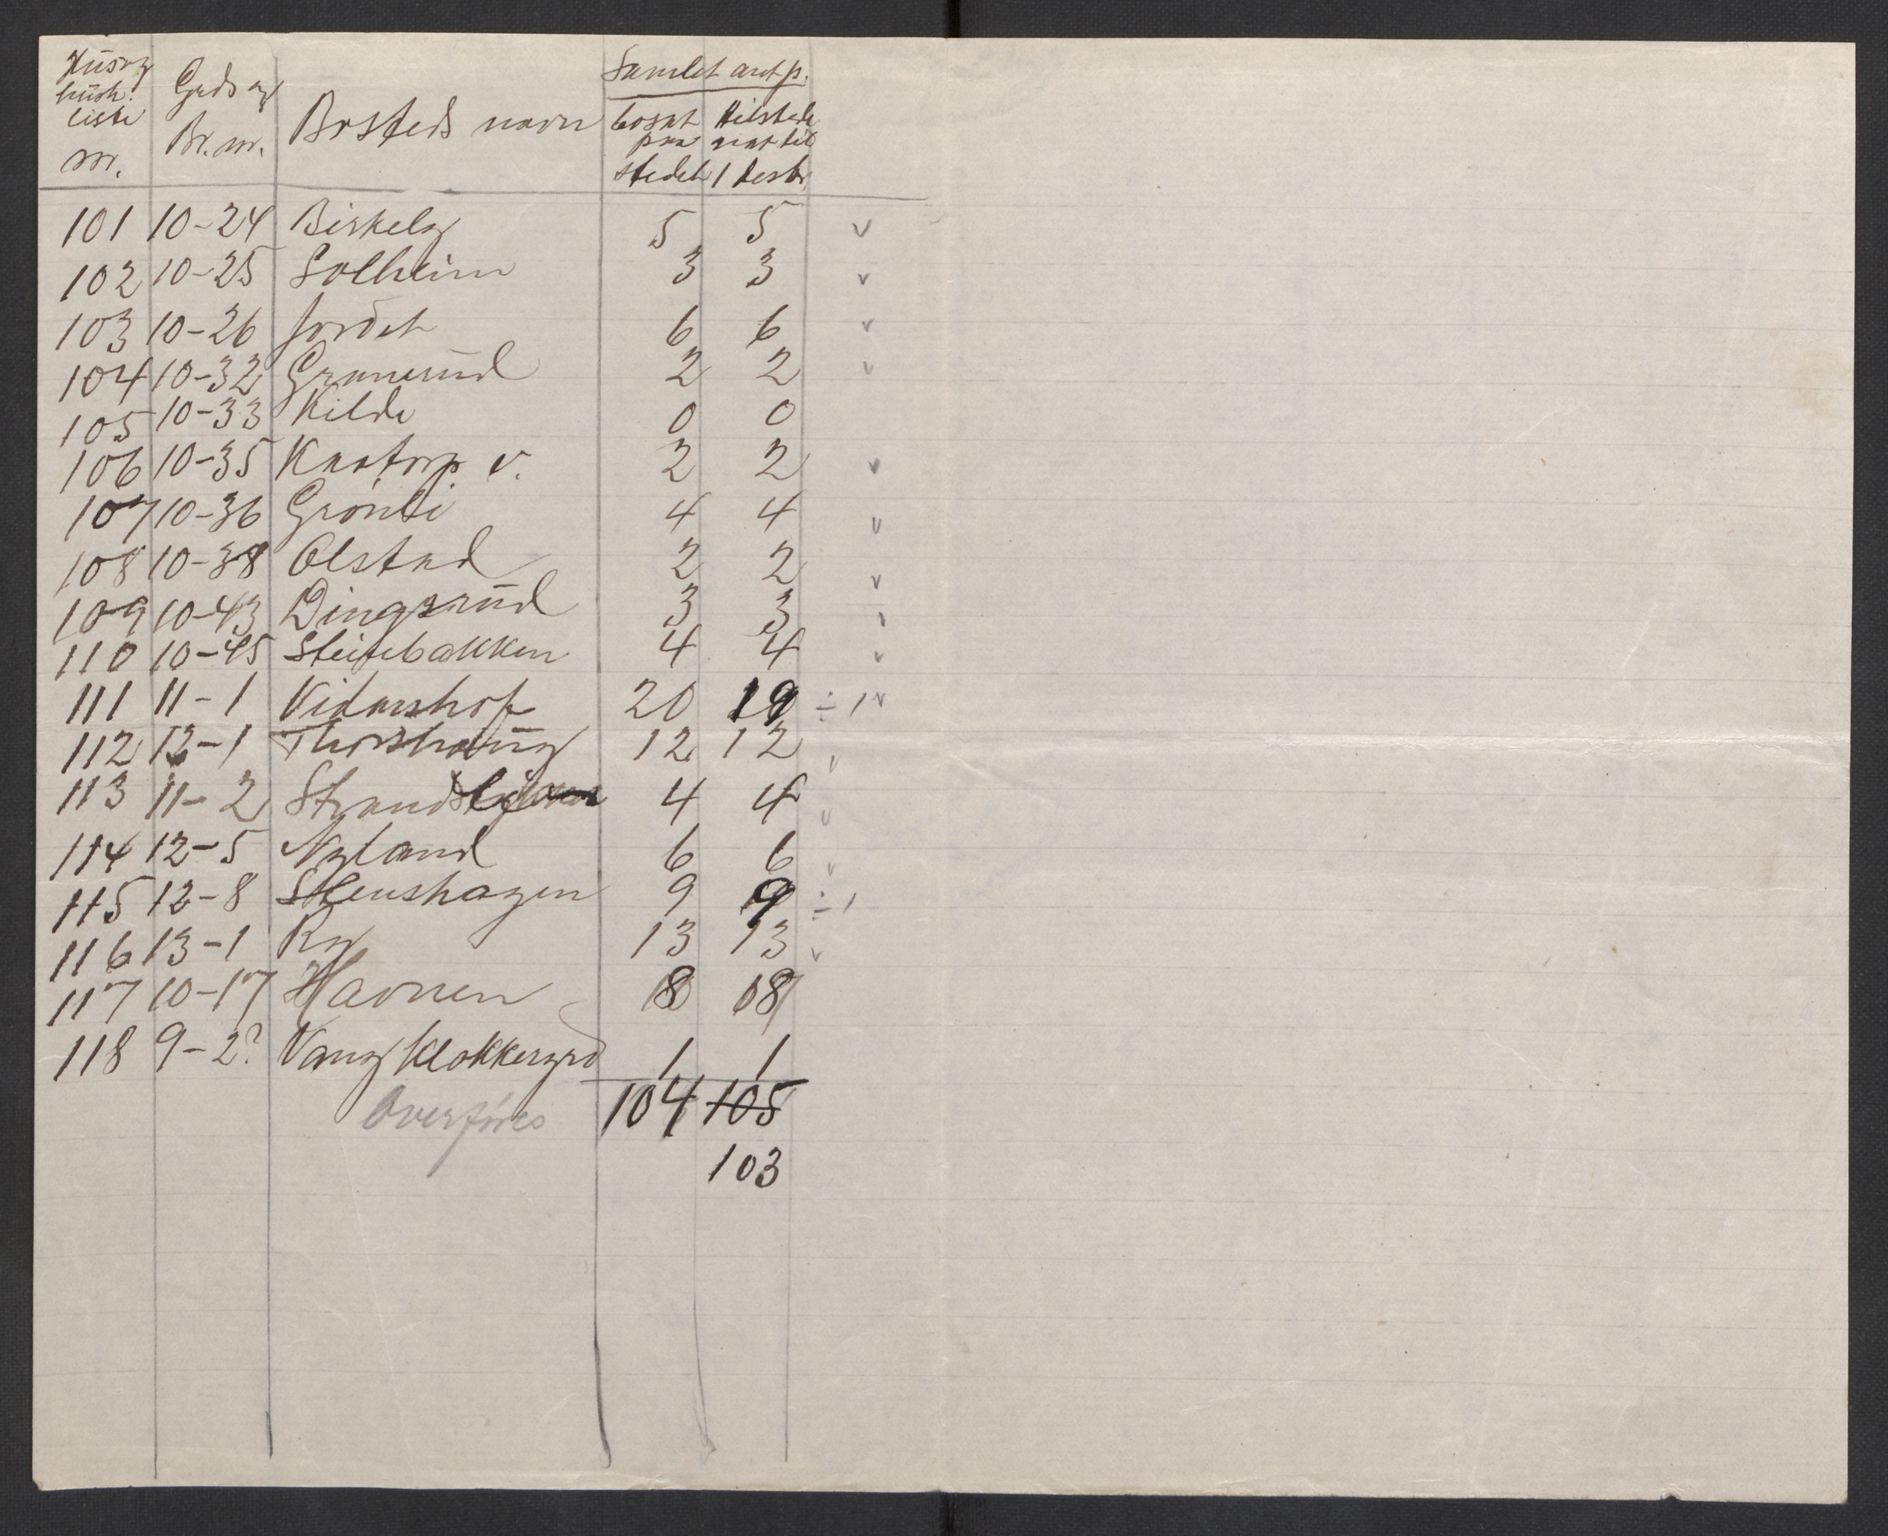 Hus og Gards og Samlet ant p.
hush. Bosteds navn bosat Tilstede
liste Br. nr. paa nat til
nr. stedet 1 desbr.
101 10-24 Birkely 5 5 v
102 10-25 Solheim 3 3 v
103 10-26 Jordet 6 6 v
104 10-32 Granerud 2 2 v
105 10-33 Kilde 0 0
106 10-35 Knatorp v. 2 2 v
107 10-36 Grønli 4 4 v
108 10-38 Olstad 2 2 v
109 10-43 Dingsrud 3 3
110 10-45 Steinbakken 4 4 v
111 11-1 Vidarshof 20 19 ÷ 1 v
112 12-1 Thorshaug 12 12
113 11-2 4 4 v
114 12-5 Nyland 6 6 v
115 12-8 Stenshagen 9 9 ÷ 1
116 13-1 Ry 13 13 v
117 10-17 Havnen 8 8
118 9-2? Vang Klokkergrd 1 1
Overføres 104 105
103